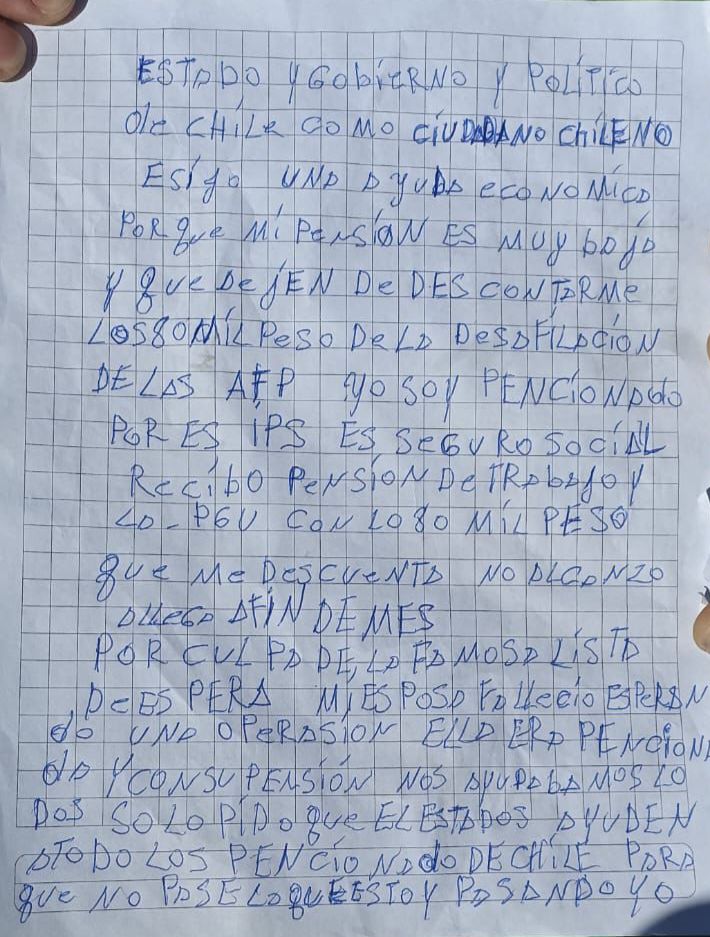 ESTADO Y GobiERNO Y POLITICO
de CHILE COMO CIUDADANO CHILENO
ESijo UNA AYUDA ECONOMICA
PORque Mi PENSION ES MUY bAjA
Y que DejEN De DESCONTARME
LOS 80 MIL PeSO De LA DesAFILACION
DE LAS AFP YO SOY PENCIONAdo
POR ES IPS ES SEGURO SOCIAL
RECIbO PENSION De TRAbAjO Y
LA - PGU CON LO 80 MIL PESO
que Me DesCUeNTA NO ALCANZO
ALLEGA AFIN DE MES
POR CULPA DE LA FAMOSA LISTA
DE ESPERA Mi ESPOSA FALLECIO ESPERAN
do UNA OPERASION ELLA ERA PENCIONA
dA Y CON SU PENSION NOS AYUDAbAMOS LO
DOS SOLO PIDO que EL ESTADOS AYUDEN
ATODO LOS PENCIONADO DE CHILE PARA
que NO PASE LO qUE ESTOY PASANDO YO